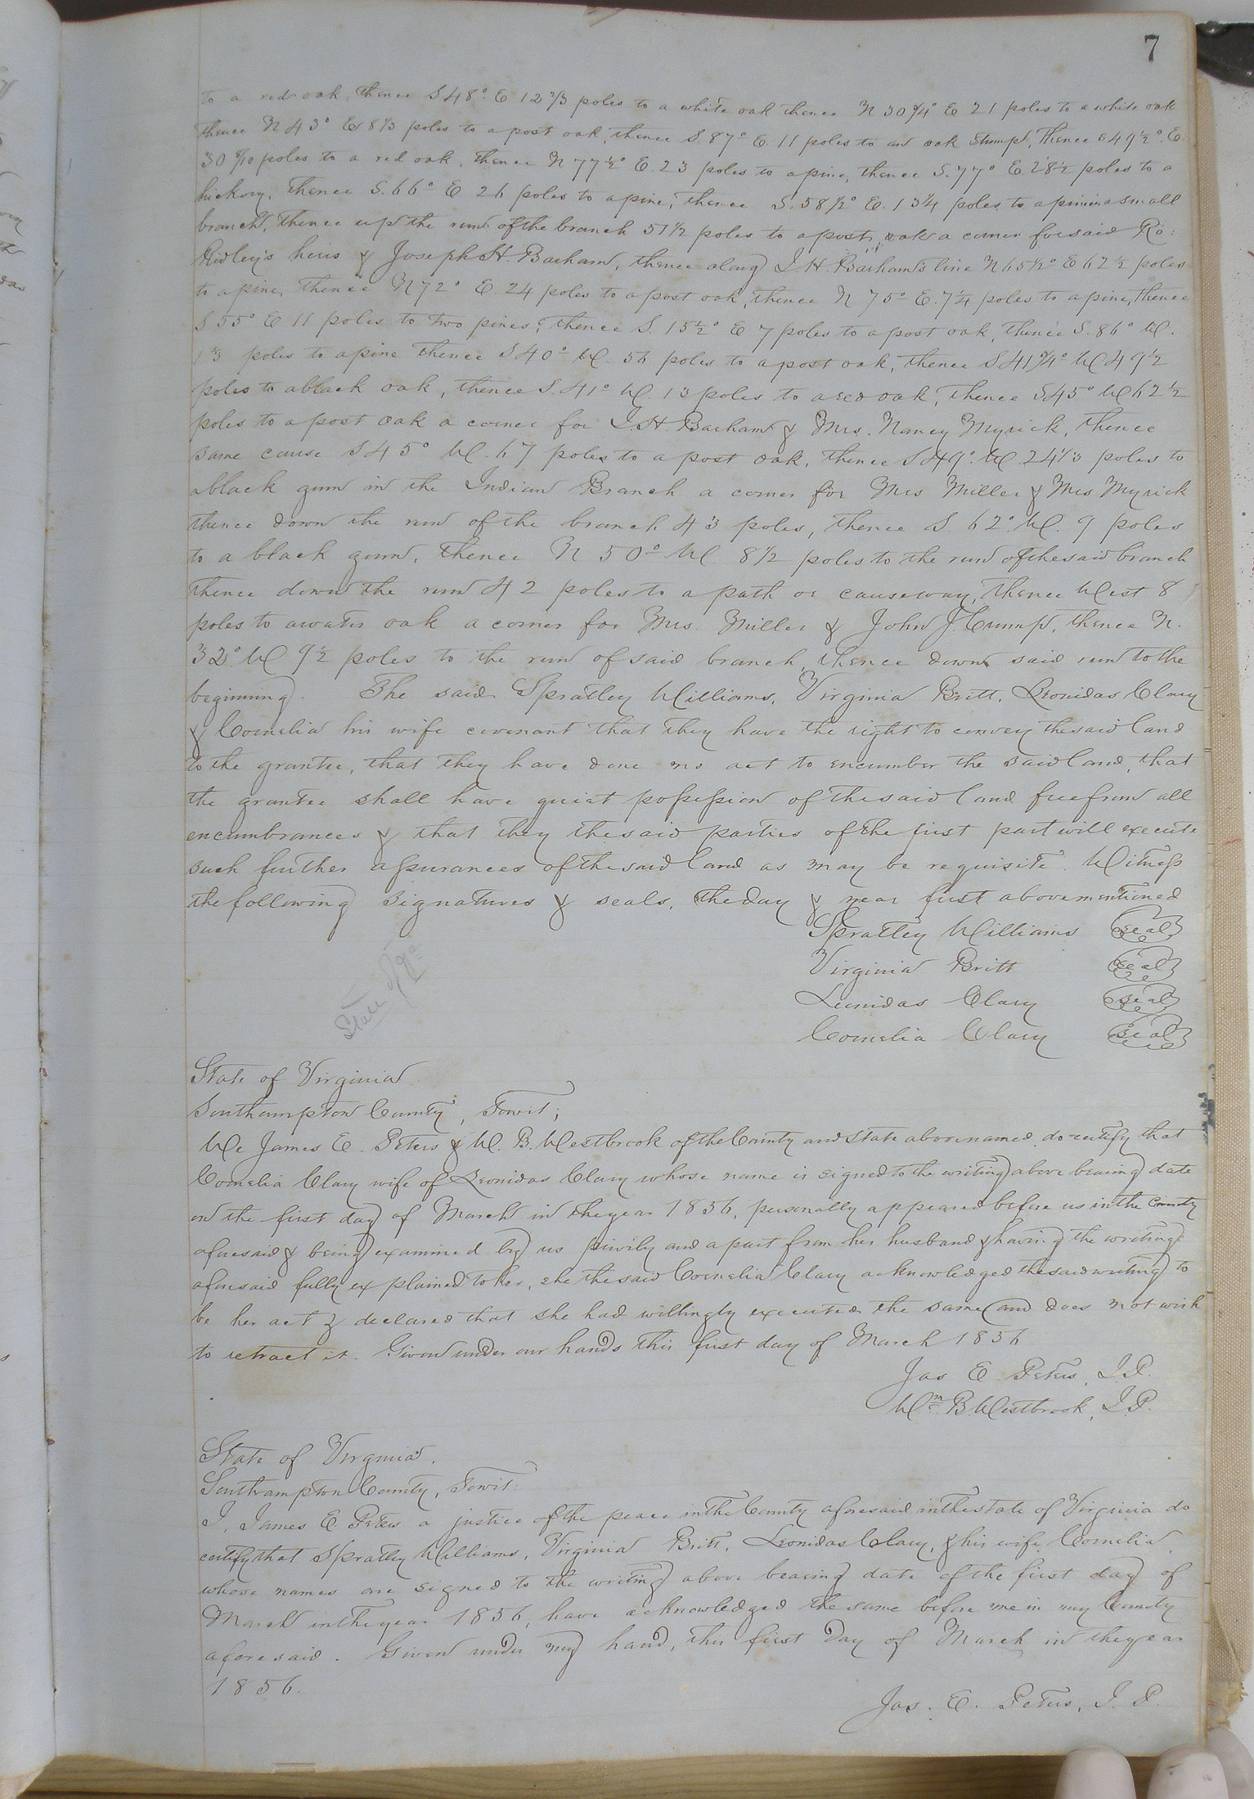 7
to a red oak, thence S48° E 12 2/3 poles to a white oak thence N 30 3/4° E 21 poles to a white oak
thence N 43° E 8 1/3 poles to a post oak, thence S. 87° E. 11 poles to an oak stump, thence S 49 1/2° E.
30 poles to a red oak, thence N 77 1/2° E. 23 poles to a pine, thence S. 77° E. 28 1/2 poles to a
hickory, thence S. 66° E 26 poles to a pine, thence S. 58 1/2° E. 13 1/4 poles to a pine in a small
branch, thence up the run of the branch 51 1/2 poles to a post oak a corner for said Ro:
Ridley's heirs & Joseph H. Barham, thence along J. H. Barham's line N 65 1/2° E 62 1/2 poles
to a pine, thence N 72° E. 24 poles to a post oak, thence N 75° E. 7 1/4 poles to a pine, thence
S 55° E 11 poles to two pines, thence S. 15 1/2° E 7 poles to a post oak, thence S. 86° W.
13 poles to a pine thence S 40° W. 56 poles to a post oak, thence S 41 3/4° W 49 1/2
poles to a black oak, thence S. 41° W. 13 poles to a red oak, thence S 45° W 62 1/2
poles to a post oak a corner for J. H Barham & Mrs. Nancy Myrick, thence
same cause S 45° W. 67 poles to a post oak, thence S 49° W 24 1/3 poles to
a black gum in the Indian Branch a corner for Mrs Miller & Mrs Myrick
thence down the run of the branch 43 poles, thence S 62° W. 9 poles
to a black gum, thence N 50° W 8 1/2 poles to the run of the said branch
thence down the run 42 poles to a path or causeway, thence West 8
poles to a water oak a corner for Mrs. Miller & John J. Crump, thence N.
32° W 9 1/2 poles to the run of said branch, thence down said run to the
beginning. The said Spratley Williams, Virginia Britt, Leonidas Clary
& Cornelia his wife covenant that they have the right to convey the said land
to the grantee, that they have done no act to encumber the said land, that
the grantee shall have quiet possession of the said land free from all
encumbrances & that they the said parties of the first part will execute
such further assurances of the said land as may be requisite. Witness
the following signatures & seals, the day & year first above mentioned
Spratley Williams seal
Virginia Britt seal
Leonidas Clary seal
Cornelia Clary seal
State of Va
State of Virginia
Southampton County, Towit;
We James E. Peters & W. B. Westbrook of the County and State above named, do certify that
Cornelia Clary wife of Leonidas Clary whose name is signed to the writing above bearing date
on the first day of March in the year 1856, personally appeared before us in the County
aforesaid & being examined by us privily and apart from her husband & having the writing
aforesaid fully explained to her, she the said Cornelia Clary acknowledged the said writing to
be her act & declared that she had willingly executed the same and does not wish
to retract it. Given under our hands this first day of March 1856
Jas E. Peters, J.P.
Wm B Westbrook, J.P.
State of Virginia.
Southampton County, Towit:
I, James E Peters a justice of the peace in the County aforesaid in the state of Virginia do
certify that Spratley Williams, Virginia Britt, Leonidas Clary, & his wife Cornelia
whose names are signed to the writing above bearing date of the first day of
March in the year 1856, have acknowledged the same before me in my County
aforesaid. Given under my hand, this first day of March in the year
1856.
Jas. E. Peters, J. P.